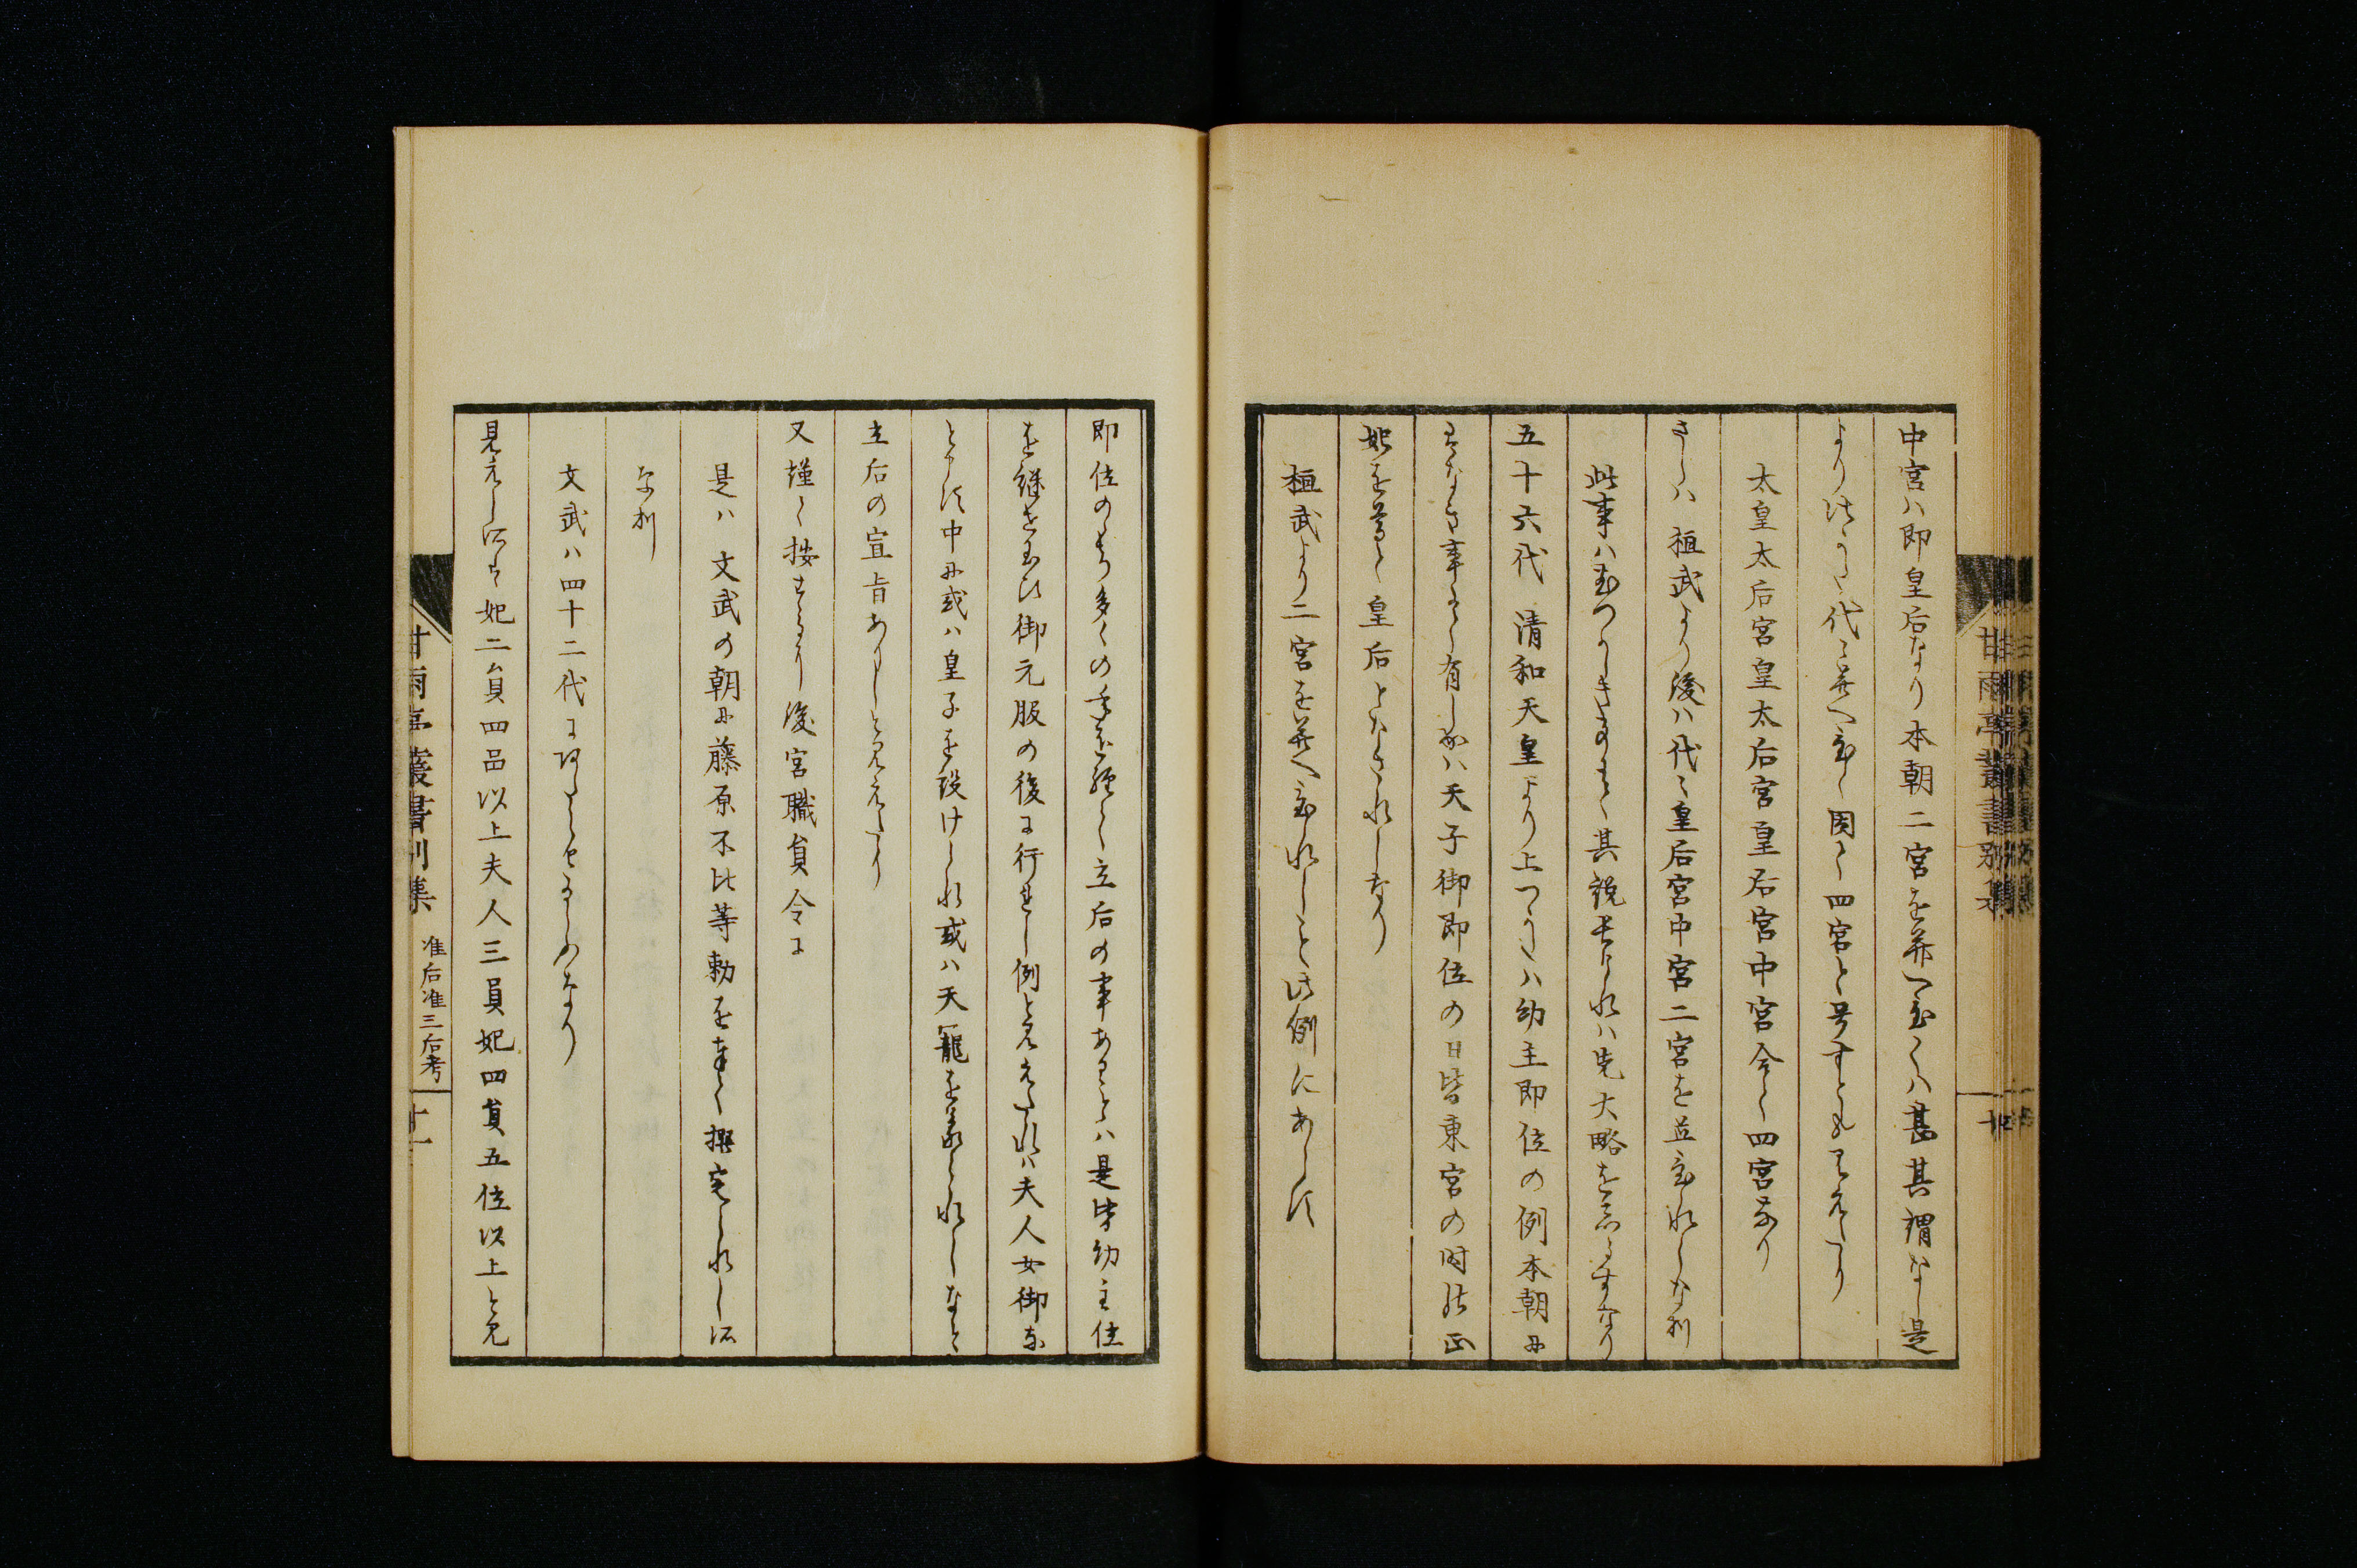 中宮ハ即皇后なり本朝二宮を並へ立らるハ甚其謂なし是
より代々並へ立て因て四宮と号すとも見えたり
太皇太后宮皇太后宮皇后宮中宮合て四宮なり
さらハ桓武より後ハ代々皇后宮中宮二宮を並立られしなり
此事ハ其説長けれハ先大略をしるすなり
五十六代清和天皇より上つかたハ幼主即位の例本朝に
またなき事にて有しかハ天子御即位の日皆東宮の時の正
妃を尊て皇后となされしなり
桓武より二宮を並へ立られしこと此例にあらす
即位のゝち多くの年を経て立后の事あることハ是皆幼主位
を継せ玉ひ御元服の後に行せし例と見えたれハ夫人女御な
とゝす中に或ハ皇子を設けられ或ハ天寵を蒙られしなと
立后の宣旨ありしと見えたり
又謹て按するに後宮職員令に
是ハ文武の朝に藤原不比等勅を奉て撰定られし所
なり
文武ハ四十二代にあたらせ給ふなり
見えし所は妃二員四品以上夫人三員妃四員五位以上と見
甘雨亭叢書別集
准后准三后考